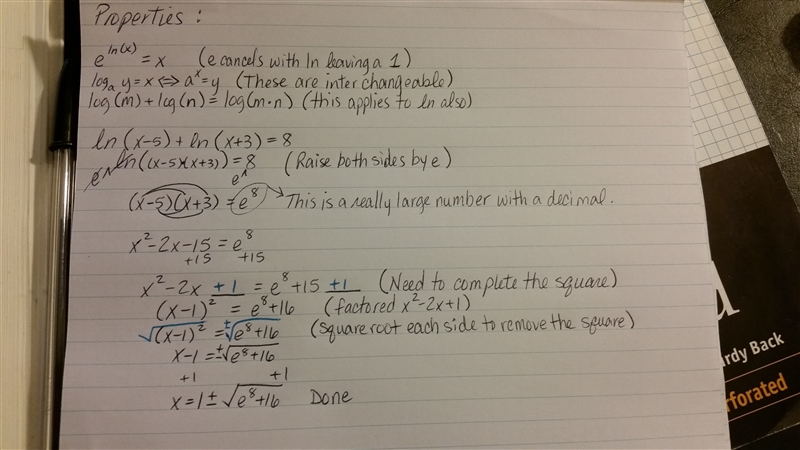 Properties:
e^ln(x) = x (e cancels with ln leaving a 1)
logₐ y = x ⟺ aˣ = y (These are interchangeable)
log(m) + log(n) = log(m·n) (this applies to ln also)
ln(x-5) + ln(x+3) = 8
e^ ln((x-5)(x+3)) = 8 (Raise both sides by e)
e^
(x-5)(x+3) = e⁸ → This is a really large number with a decimal.
x² - 2x - 15 = e⁸
+15 +15
x² - 2x + 1 = e⁸ + 15 + 1 (Need to complete the square)
(x-1)² = e⁸ + 16 (factored x² - 2x + 1)
√(x-1)² = ±√e⁸+16 (square root each side to remove the square)
x - 1 = ±√e⁸+16
+1 +1
x = 1 ± √e⁸+16 Done
d
rdy Back
rforated